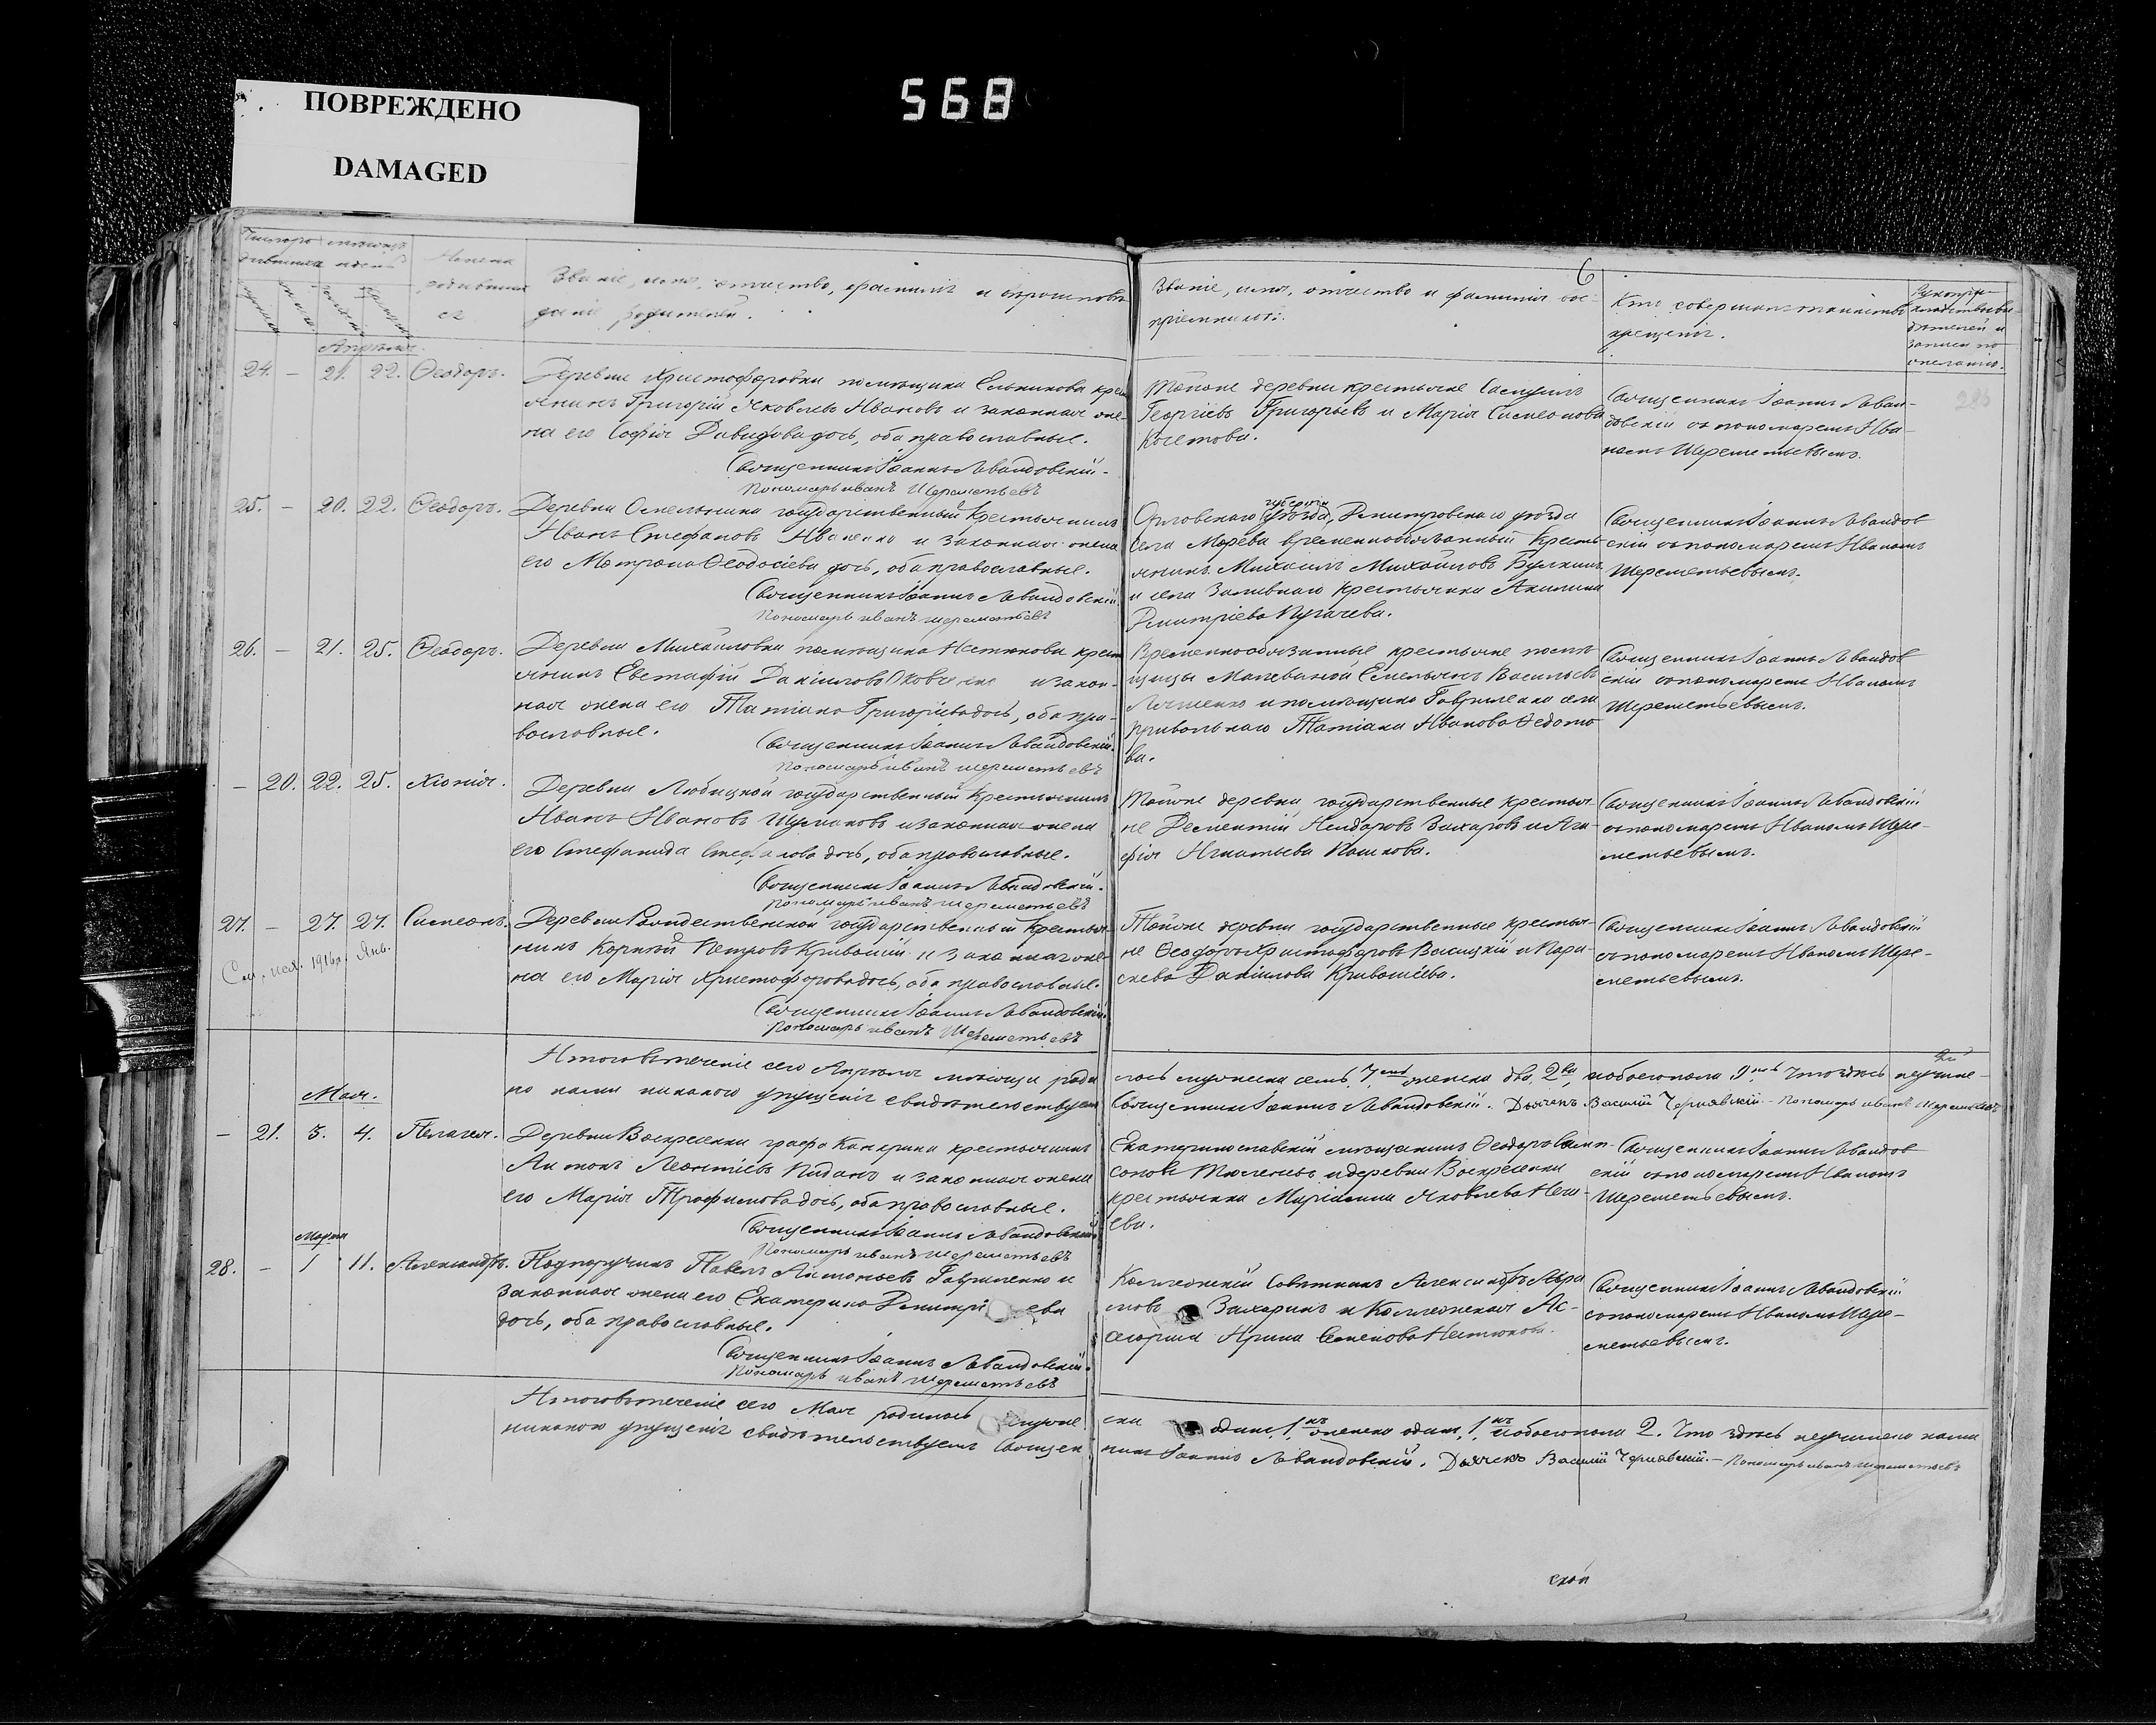 ПОВРЕЖДЕНО
DAMAGED
568
6
Званіе, имя, отчество, фамилія и вѣроисповѣ-
даніе родителей.
Званіе, имя, отчество и фамилія вос-
пріемниковъ.
Кто совершалъ таинство
крещенія.
Апрѣля.
24. — 21. 22. Ѳеодоръ.
Деревни Христофоровки помѣщика Ельникова крес
янинъ Григорій Яковлевъ Ивановъ и законная же-
на его Софія Давидова дочь, оба православные.
Священникъ Іоаннъ Лавандовскій.
Пономарь иванъ Шереметьевъ
Тойже деревни крестьяне
Георгіевъ Григорьевъ и Марія Симеонова
Священникъ Іоаннъ Лаван-
довскій съ пономаремъ Ива-
номъ Шереметьевымъ.
25. — 20. 22. Ѳеодоръ.
Деревни государственный крестьянинъ
Иванъ Стефановъ Иваненко и законная жена
его Матрона Ѳеодосіева дочь, оба православные.
Священникъ Іоаннъ Лавандовскій.
Пономарь иванъ шереметьевъ
губерніи
Орловскаго уѣзда, Дмитровскаго уѣзда
села Морева временнообязанный кресть-
янинъ Михаилъ Михайловъ Булкинъ
и села Заливнаго крестьянка Акилина
Дмитріева Пугачева.
Священникъ Іоаннъ Лавандов
скій съ пономаремъ Иваномъ
Шереметьевымъ.
26. — 21. 25. Ѳеодоръ.
Деревни Михайловки помѣщика Нестюкова крест
янинъ Евстафій Даніиловъ и закон-
ная жена его Татіана Григоріева дочь, оба пра-
вославные.
Священникъ Іоаннъ Лавандовскій.
Пономарь иванъ шереметьевъ
Временнообязанные крестьяне помѣ
щицы Емельянъ Васильевъ
и помѣщика Гавриленко села
Привольнаго Татіана Иванова Ѳедото
ва.
Священникъ Іоаннъ Лавандов
скій съ пономаремъ Иваномъ
Шереметьевымъ.
— 20. 22. 25. Хіонія.
Деревни Любицкой государственный крестьянинъ
Иванъ Ивановъ Шумаковъ и законная жена
его Стефанида дочь, оба православные.
Священникъ Іоаннъ Лавандовскій.
Пономарь иванъ шереметьевъ
Тойже деревни государственные крестья
не Дементій Захаровъ и Ага-
фія Игнатьева Пашкова.
Священникъ Іоаннъ Лавандовскій
съ пономаремъ Иваномъ Шере-
метьевымъ.
27. — 27. 27. Симеонъ.
1916 г. Янв.
Деревни Рождественской государственный крестья
нинъ Корнѣй Петровъ и законная же-
на его Марія Христофорова дочь, оба православные.
Священникъ Іоаннъ Лавандовскій.
Пономарь иванъ Шереметьевъ
Тойже деревни государственные крестья
не Ѳеодоръ Христофоровъ Висицкій и Пара-
скева Даніилова Кривошіева.
Священникъ Іоаннъ Лавандовскій
съ пономаремъ Иваномъ Шере-
метьевымъ.
Итого въ теченіе сего Апрѣля мѣсяца роди
лось мужеска семь, 7, женска два, 2, и обоего пола 9 что здѣсь
но нами никакого упущенія свидѣтельствуемъ
Священникъ Іоаннъ Лавандовскій. Дьячекъ Василій Чернявскій — Пономарь иванъ шереметьевъ
Мая.
— 21. 3. 4. Пелагея.
Деревни Воскресенки графа Канкрина крестьянинъ
Антонъ Леонтіевъ и законная жена
его Марія Трофимова дочь, оба православные.
Священникъ Іоаннъ Лавандовскій
Пономарь иванъ шереметьевъ
Екатеринославскій мѣщанинъ Ѳеодоръ Самп-
соновъ и деревни Воскресенки
крестьянка Яковлева
ева.
Священникъ Іоаннъ Лавандов
скій съ пономаремъ Иваномъ
Шереметьевымъ.
Марта
28. — 1 11. Александръ.
Подпоручикъ Павелъ Антоньевъ Гавриленко и
законная жена его Екатерина Дмитріева
дочь, оба православные.
Священникъ Іоаннъ Лавандовскій.
Пономарь иванъ шереметьевъ
Коллежскій Совѣтникъ Александръ Абра
мовъ Захаринъ и Коллежская Ас-
сесорша Ирина Семенова Нестюкова.
Священникъ Іоаннъ Лавандовскій
съ пономаремъ Иваномъ Шере-
метьевымъ.
Итого въ теченіе сего Мая родилось муже
ска одинъ, 1, женска одинъ, 1, и обоего пола 2. Что здѣсь нами
никакого упущенія свидѣтельствуемъ Священ
никъ Іоаннъ Лавандовскій. Дьячекъ Василій Чернявскій. — Пономарь иванъ шереметьевъ